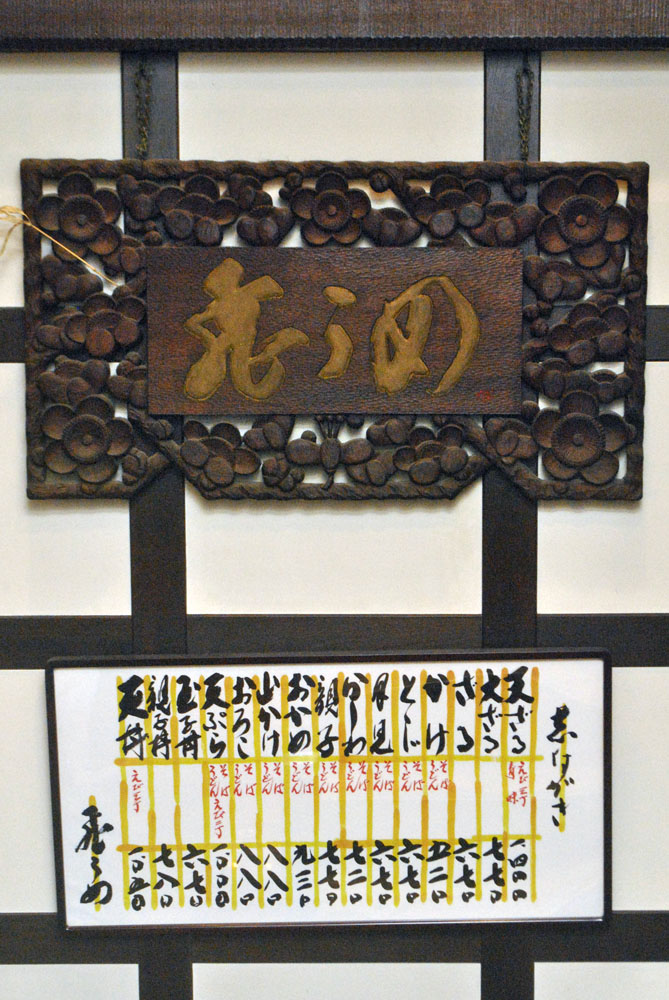 飛うめ
志ながき
天ざる えび二丁 一、四〇〇
大ざる 七七〇
ざる 六七〇
かけ そば うどん 五二〇
とじ そば うどん 六七〇
月見 そば うどん 六七〇
かしわ そば うどん 七二〇
親子 そば うどん 七七〇
おかめ そば うどん 九三〇
山かけ そば うどん 八八〇
おろし そば うどん 八八〇
天ぷら そば うどん えび二丁 一、〇〇〇
玉子丼 六七〇
親子丼 七八〇
天丼 えび二丁 一、〇五〇
飛うめ